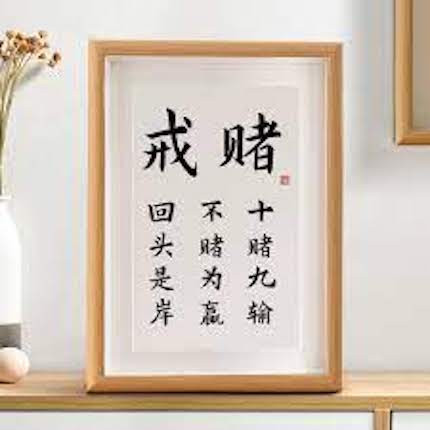 戒赌
十赌九输
不赌为赢
回头是岸